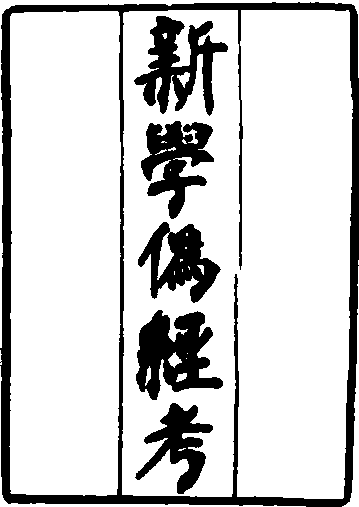 新學偽經考